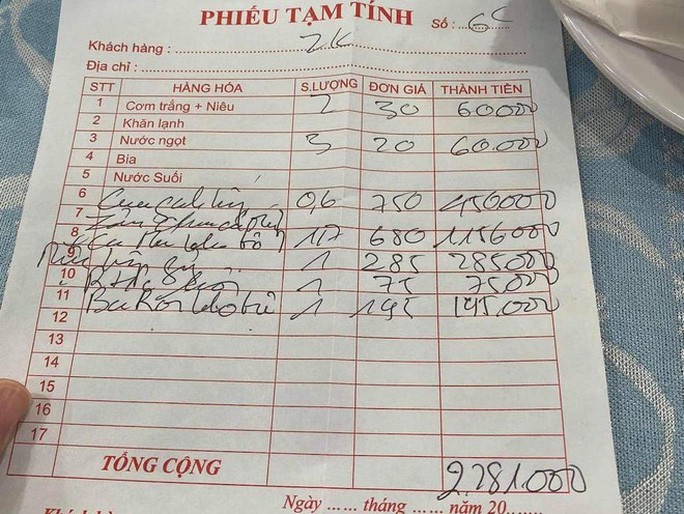 PHIẾU TẠM TÍNH Số : 6C
Khách hàng : 2K
Địa chỉ :
STT HÀNG HÓA S.LƯỢNG ĐƠN GIÁ THÀNH TIỀN
1 Cơm trắng + Niêu 2 30 60000
2 Khăn lạnh
3 Nước ngọt 3 20 60.000
4 Bia
5 Nước Suối
6 0,6 750 450000
7
8 1,7 680 1156000
9 1 285 285.000
10 1 75 75.000
11 1 195 195.000
12
13
14
15
16
17
TỔNG CỘNG 2.281.000
Ngày ...... tháng ...... năm 20......